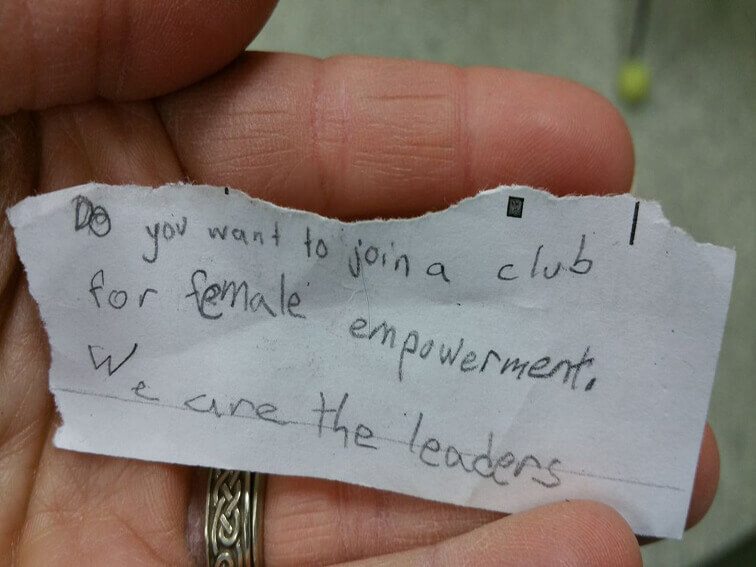 Do you want to join a club
for female empowerment.
We are the leaders